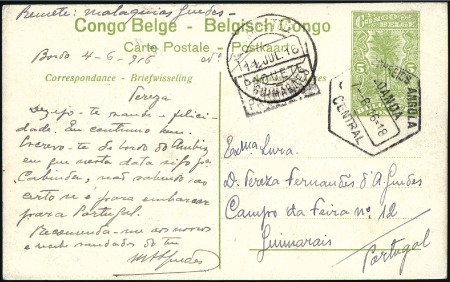 Remete: Malaquias Guedes -
Congo Belge - Belgisch Congo
CONGO BELGE
Carte Postale - Postkaart
Bordo 4-6-916
Correspondance - Briefwisseling
Tereza
Desejo-te saude e felici-
dade. Eu continuo bem.
Escrevo-te de bordo do Ambriz,
em que nesta data sigo para
Cabinda, não sabendo ao
certo se é para embarcar
para Portugal.
Recomenda-me aos nossos
e mil saudades do teu
MGuedes
11 JUL 16
CORREIOS ANGOLA
LOANDA
CENTRAL
5
Exma Snra.
D. Tereza Fernandes d'A. Guedes
Campo da Feira nº 12
Guimarais
Portugal